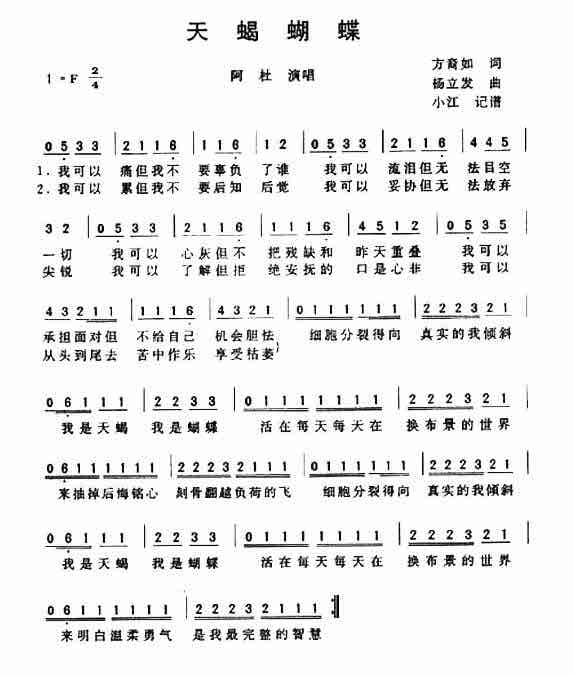 天蝎蝴蝶
1=F 2/4
阿杜 演唱
方裔如 词
杨立发 曲
小江 记谱
0533 | 2116 | 116 | 12 | 0533 | 2116 | 445 |
1.我可以 痛但我不 要辜负 了谁 我可以 流泪但无 法目空
2.我可以 累但我不 要后知 后觉 我可以 妥协但无 法放弃
32 | 0533 | 2116 | 1116 | 4512 | 0535 |
一切 我可以 心灰但不 把残缺和 昨天重叠 我可以
尖锐 我可以 了解但拒 绝安抚的 口是心非 我可以
43211 | 1116 | 4321 | 01111111 | 222321 |
承担面对但 不给自己 机会胆怯 细胞分裂得向 真实的我倾斜
从头到尾去 苦中作乐 享受枯萎}
06111 | 2233 | 01111111 | 222321 |
我是天蝎 我是蝴蝶 活在每天每天在 换布景的世界
06111111 | 22231111 | 01111111 | 222321 |
来抽掉后悔铭心 刻骨翻越负荷的飞 细胞分裂得向 真实的我倾斜
06111 | 2233 | 01111111 | 222321 |
我是天蝎 我是蝴蝶 活在每天每天在 换布景的世界
06111111 | 2223211 :‖
来明白温柔勇气 是我最完整的智慧